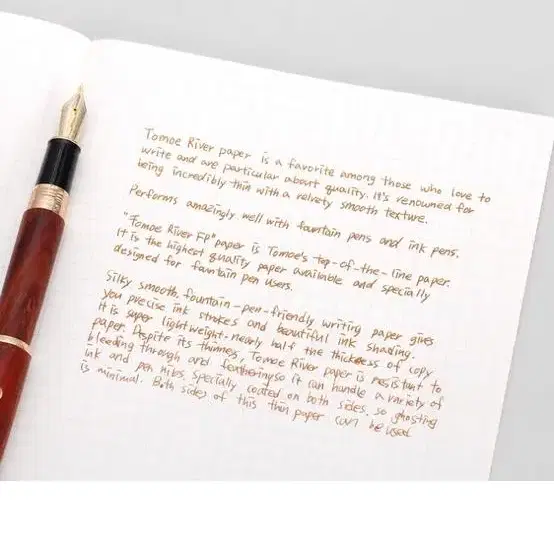 Tomoe River paper is a favorite among those who love to
write and are particular about quality. It's renowned for
being incredibly thin with a velvety smooth texture.
Performs amazingly well with fountain pens and ink pens.
"Tomoe River FP" paper is Tomoe's top-of-the-line paper.
It is the highest quality paper available and specially
designed for fountain pen users.
Silky smooth, fountain-pen-friendly writing paper gives
you precise ink strokes and beautiful ink shading.
It is super lightweight-nearly half the thickness of copy
paper. Despite its thinnes, Tomoe River paper is resistant to
bleeding through and feathering so it can handle a variety of
ink and pen nibs specially coated on both sides, so ghosting
is minimal. Both sides of this thin paper can be used